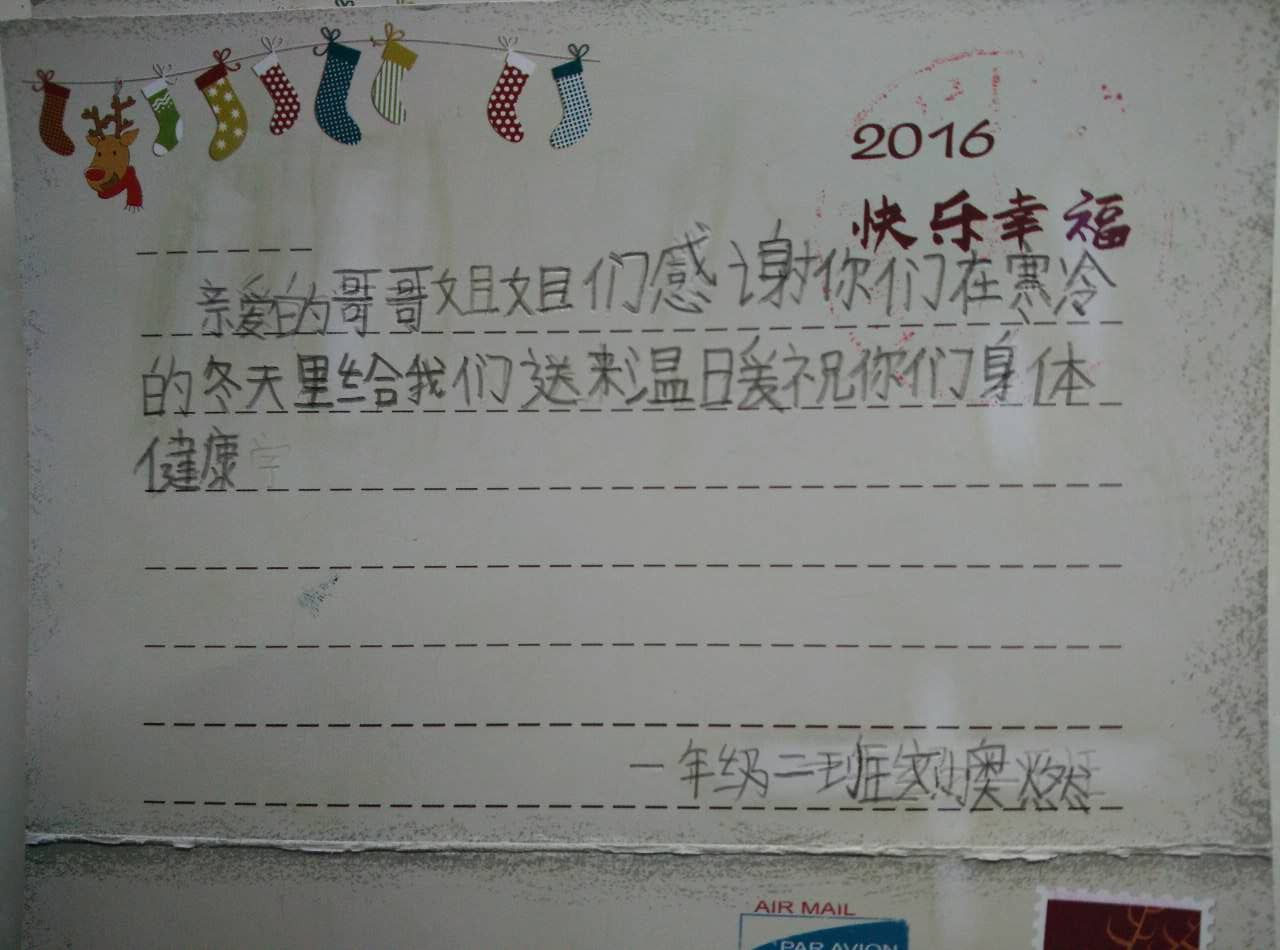 2016
快乐幸福
亲爱的哥哥姐姐们感谢你们在寒冷
的冬天里给我们送来温暖祝你们身体
健康学
一年级二班刘奥
AIR MAIL
PAR AVION